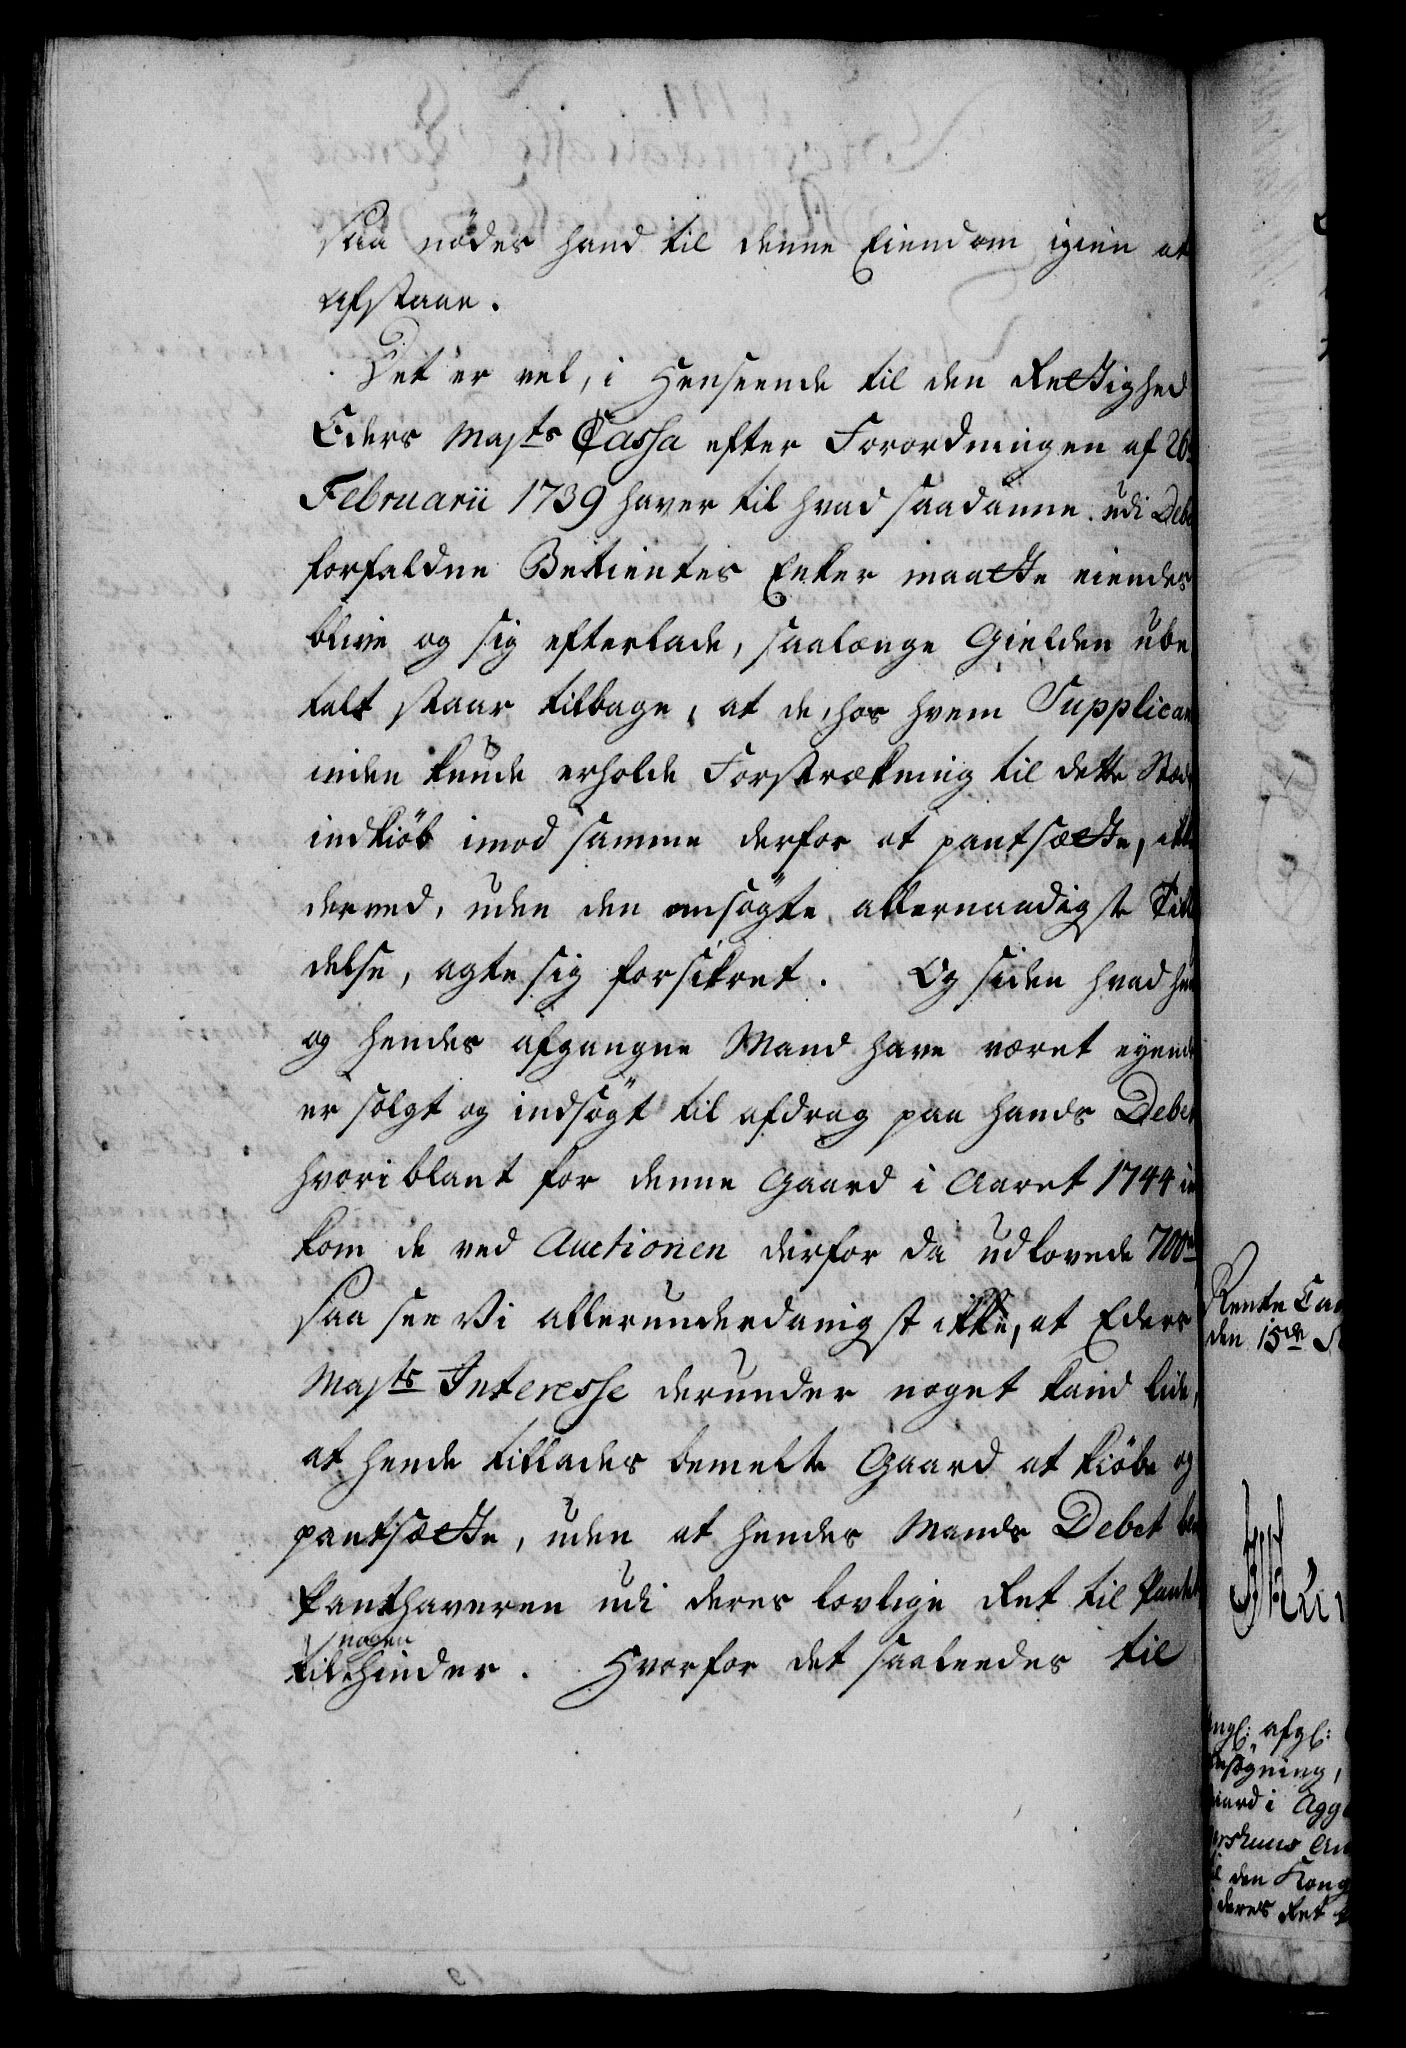 saa nödes hand til denne Eiendom igien at
afstaae.
Det er vel, i Henseende til den Rettighed
Eders Majts Cassa efter Forordningen af 26
Februarii 1739 haver til hvad saadanne udi Debet
forfaldne Betientes Enker maatte eiendes
blive og sig efterlade, saalænge Gielden ube
talt staar tilbage, at de, hos hvem Supplican
inden kunde erholde Forstrækning til dette Stæds
indkiöb imod samme derfor at pantsætte, ikke
derved, uden den ansögte allernaadigste Till
delse, agte sig forsikret. Og siden hvad hun
og hendes afgangne Mand have været eyende
er solgt og indsögt til afdrag paa hands Debet
hvoriblant for denne Gaard i Aaret 1744 in
kom de ved Auctionen derfor da udlovede 700rd
Saa see Vi allerunderdanigst ikke, at Eders
Majts Interesse derunder noget kand lide,
at hende tillades bemelte Gaard at kiöbe og
pantsætte, uden at hendes Mands Debet
Panthaveren udi deres lovlige Ret til Pantet
nogen
til Hinder. Hvorfor det saaledes til
Rente Cam
den 15de
afgl:
nsögning,
gaard i Agg
ershuus Am
til den Kong
deres Ret